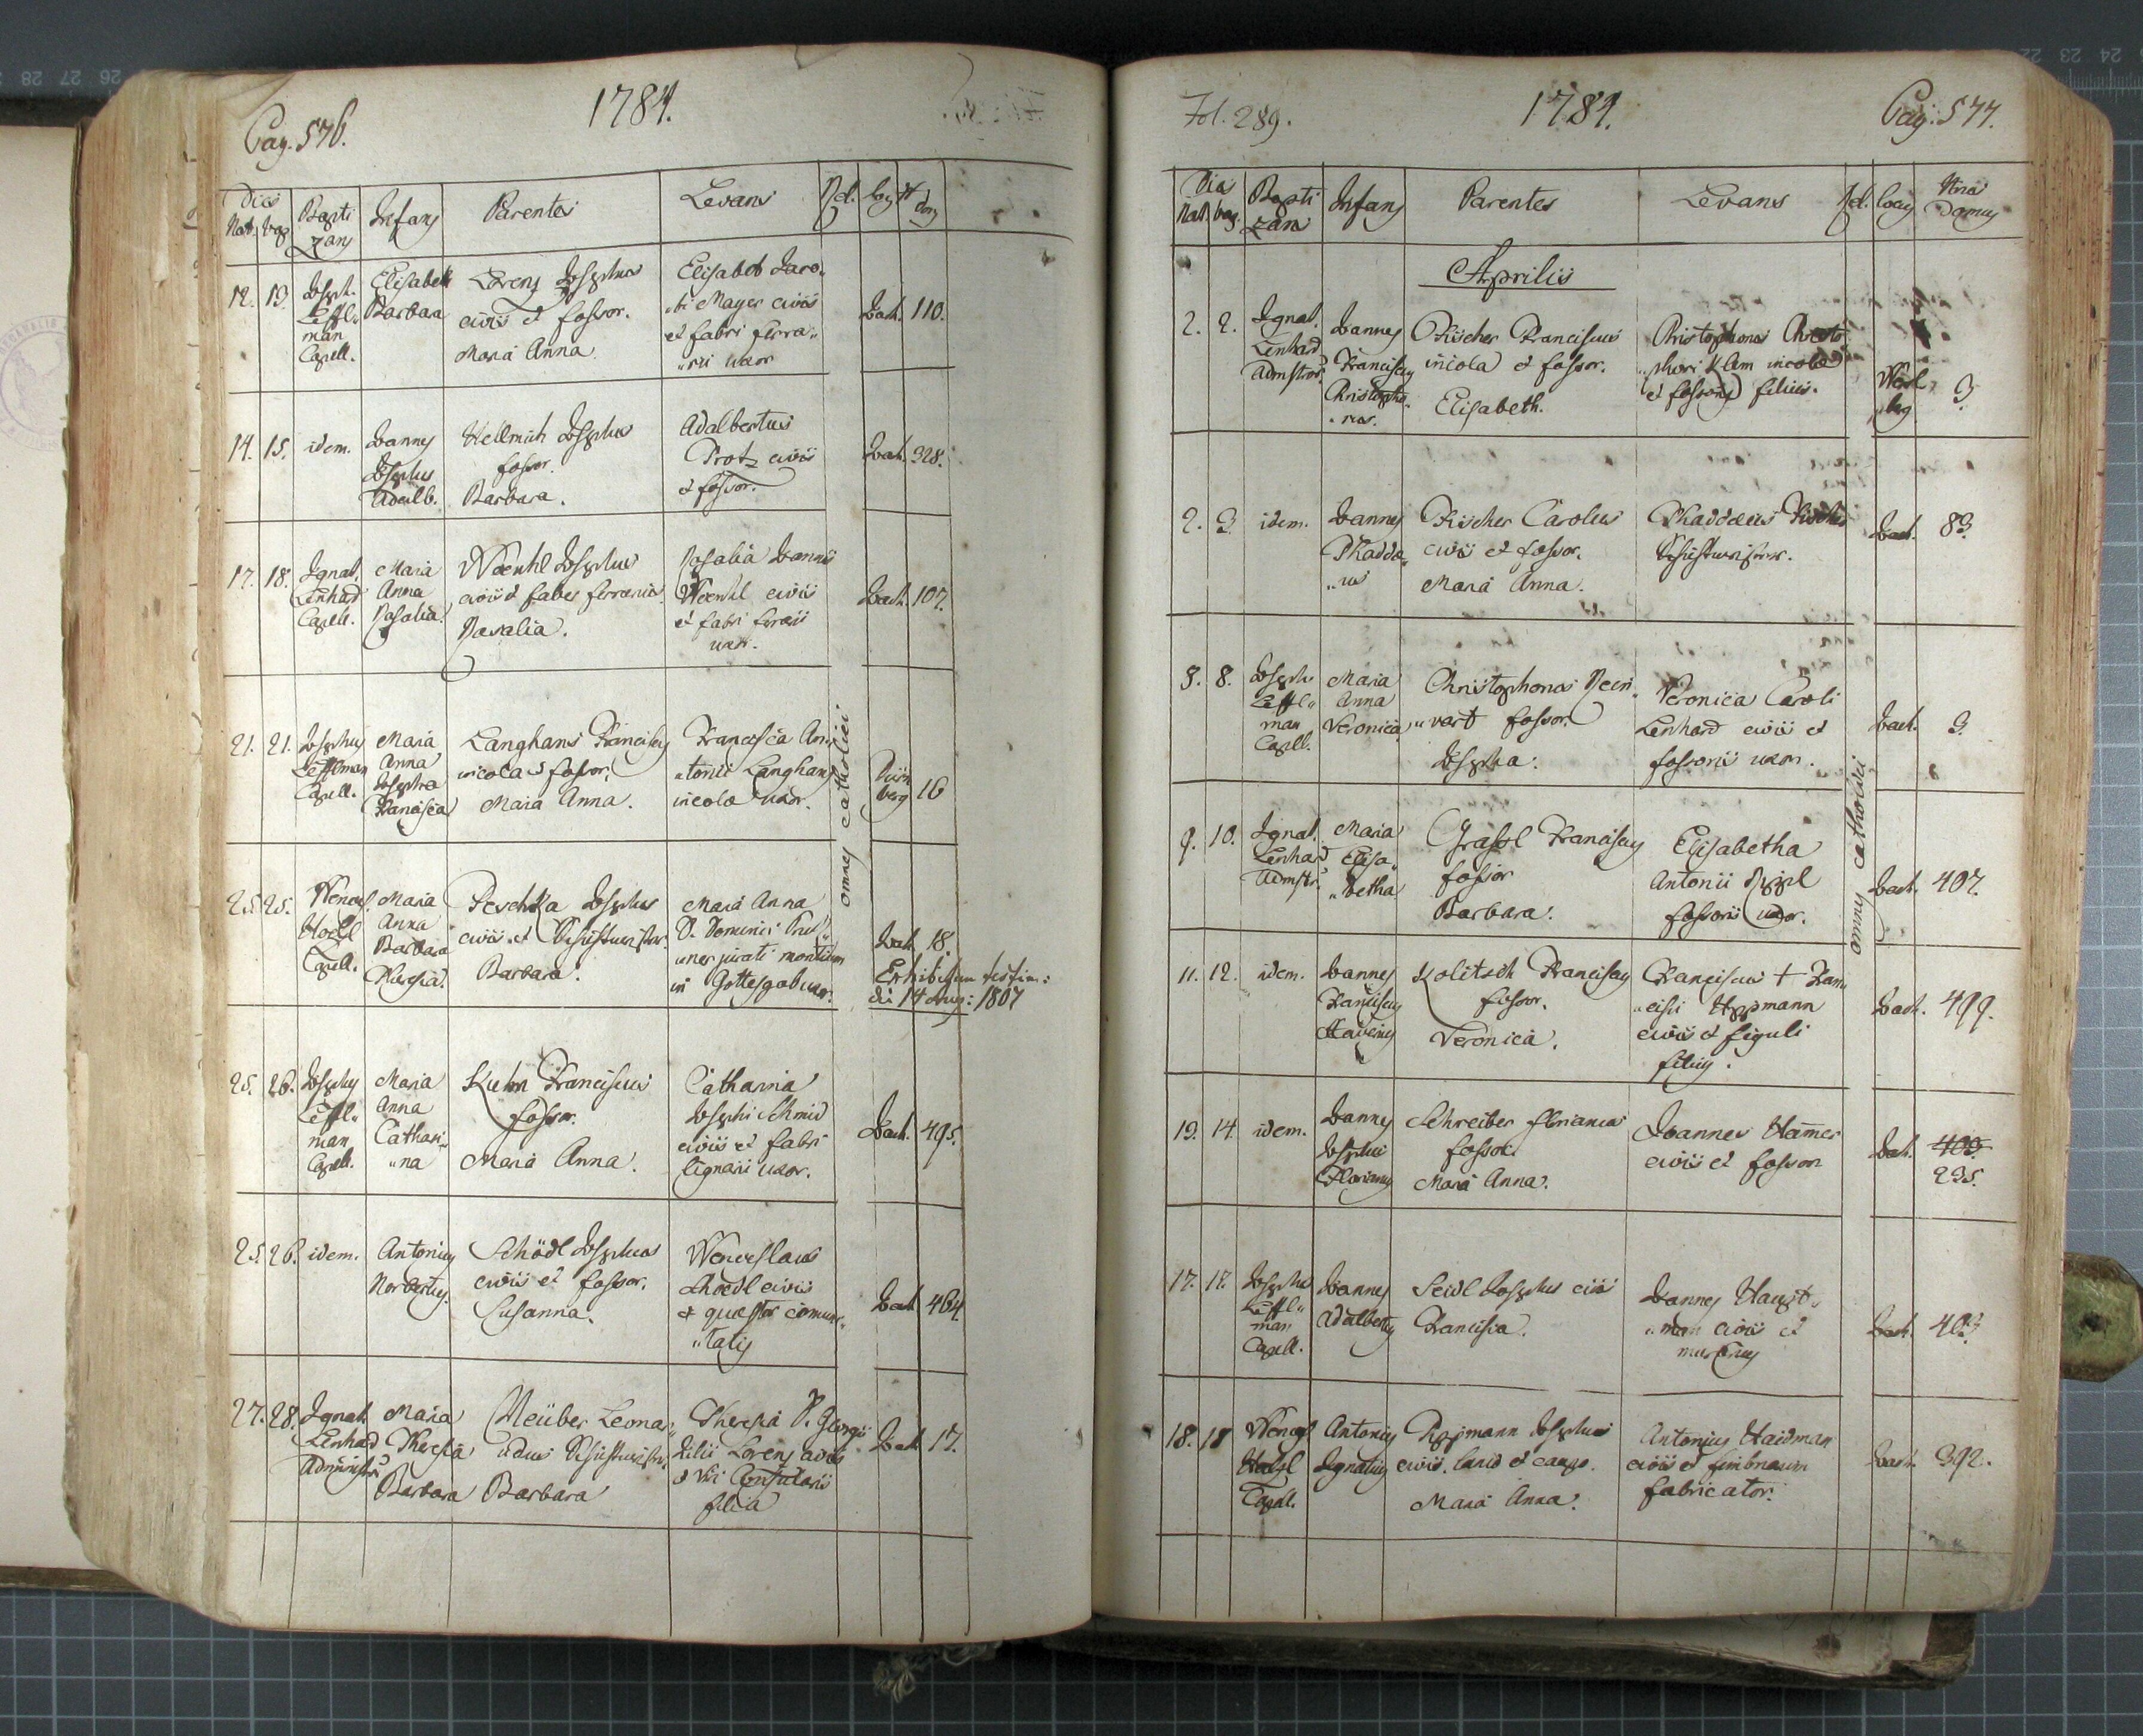 Pag. 576.
1784.
Dies
Nat. bap.
Bapti
zans
Infans
Parentes
Levans
Rel.
Loc.
N
dom
12. 13.
Joseph.
Leffl„
man
Capell.
Elisabeth
Barbara
Lorenz Josephus
civis et fossor.
Maria Anna
Elisabet Jaco„
„bi Mayer civis
et fabri ferra„
„rii uxor
Joach. 110.
14. 15.
idem.
Joannes
Josephus
Adalb.
Hellmich Josephus
fossor.
Barbara.
Adalbertus
Protz civis
et fossor.
Joach. 328.
17. 18.
Ignat.
Lenhard
Capell.
Maria
Anna
Rosalia.
Woehl Josephus
civis et faber ferrarius.
Rosalia.
Rosalia Joannis
civis
et fabri ferrarii
uxor.
Joach. 107.
21. 21.
Josephus
Lefflman
Capell.
Maria
Anna
Josepha
Francisca
Langhans Franciscus
incola et fossor.
Maria Anna.
Francisca An„
„tonii Langhans
incolae uxor.
Dürn
berg
16
omnes catholici
25. 25.
Wencesl.
Capell.
Maria
Anna
Barbara
Theresia.
Peschka Josephus
civis et
Barbara.
Maria Anna
D. Dominici
jurati montium
in Gottesgab uxor.
Joach. 18.
Exhibitum testim:
die 14 Aug: 1807
25. 26.
Josephus
Leffl„
man
Capell.
Maria
Anna
Cathari„
„na
Kuhn Franciscus
fossor.
Maria Anna.
Catharina
Josephi Schmid
civis et fabri
lignarii uxor.
Joach. 495.
25. 26.
idem.
Antonius
Norbertus.
Schödl Josephus
civis et fossor.
Susanna.
Wenceslaus
Schoedl civis
et quaestor comuni„
„tatis
Joach. 464.
27. 28.
Ignat.
Lenhard
Administr.
Maria
Theresia
Barbara
Meüber Leonar„
„dus
Barbara
Theresia D. Georgii
Lorenz civis
et Consularis
filia
Joach. 17.
Fol. 289.
1784.
Pag. 577.
Dies
Nat. bap.
Bapti
zans
Infans
Parentes
Levans
Rel.
Locus
Nrus
Domus
Aprilis
2. 2.
Ignat.
Lenhard
Admstror.
Joannes
Franciscus
Christopho„
„rus.
Fischer Franciscus
incola et fossor.
Elisabeth.
Christophorus Christo„
„phori Klem incolae
et fossoris filius.
Werl„
„sberg
3.
2. 3.
idem.
Joannes
Thadda„
„us
Fischer Carolus
civis et fossor.
Maria Anna.
Thaddaeus Fischer
Joach. 83.
8. 8.
Joseph.
Leffl„
man
Capell.
Maria
Anna
Veronica
Christophorus Rein„
„vart fossor.
Josepha.
Veronica Caroli
Lenhard civis et
fossoris uxor.
Joach. 3.
9. 10.
Ignat.
Lenhard
Admstr.
Maria
Elisa„
„betha
Grassl Franciscus
fossor
Barbara.
Elisabetha
Antonii
fossoris uxor.
Joach. 407.
omnes catholici
11. 12.
idem.
Joannes
Franciscus
Xaverius
Kolitsch Franciscus
fossor.
Veronica.
Franciscus + Fran„
„cisci Uppmann
civis et figuli
filius.
Joach. 499.
13. 14.
idem.
Joannes
Josephus
Florianus
Schreiber Florianus
fossor.
Maria Anna.
Joannes Hamer
civis et fossor
Joach. 403.
295.
17. 17.
Joseph.
Leffl„
man
Capell.
Joannes
Adalbertus
Seidl Josephus civis
Francisca.
Joannes Haupt„
„man civis et
murarius
Joach. 403.
18. 18
Wencesl.
Capell.
Antonius
Ignatius
Josephus
civis.
Maria Anna.
Antonius Haidman
civis et fimbriarum
fabricator.
Joach. 392.